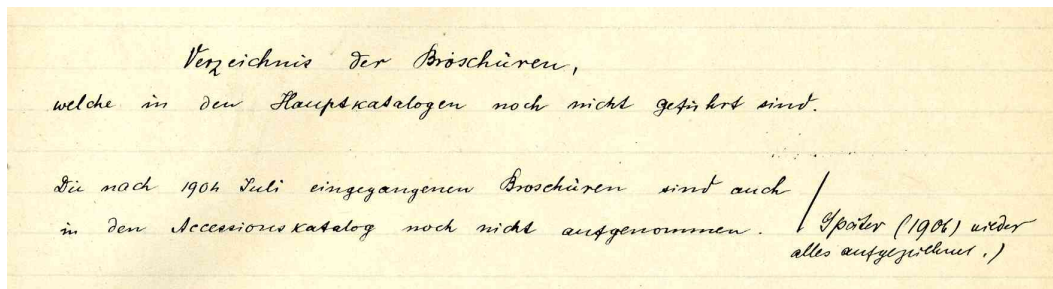 Verzeichnis der Broschüren,
welche in den Hauptkatalogen noch nicht geführt sind.
Die nach 1904 Juli eingegangenen Broschüren sind auch
in den Accessionskatalog noch nicht aufgenommen.
/ Später (1906) wieder
alles aufgezeichnet.)